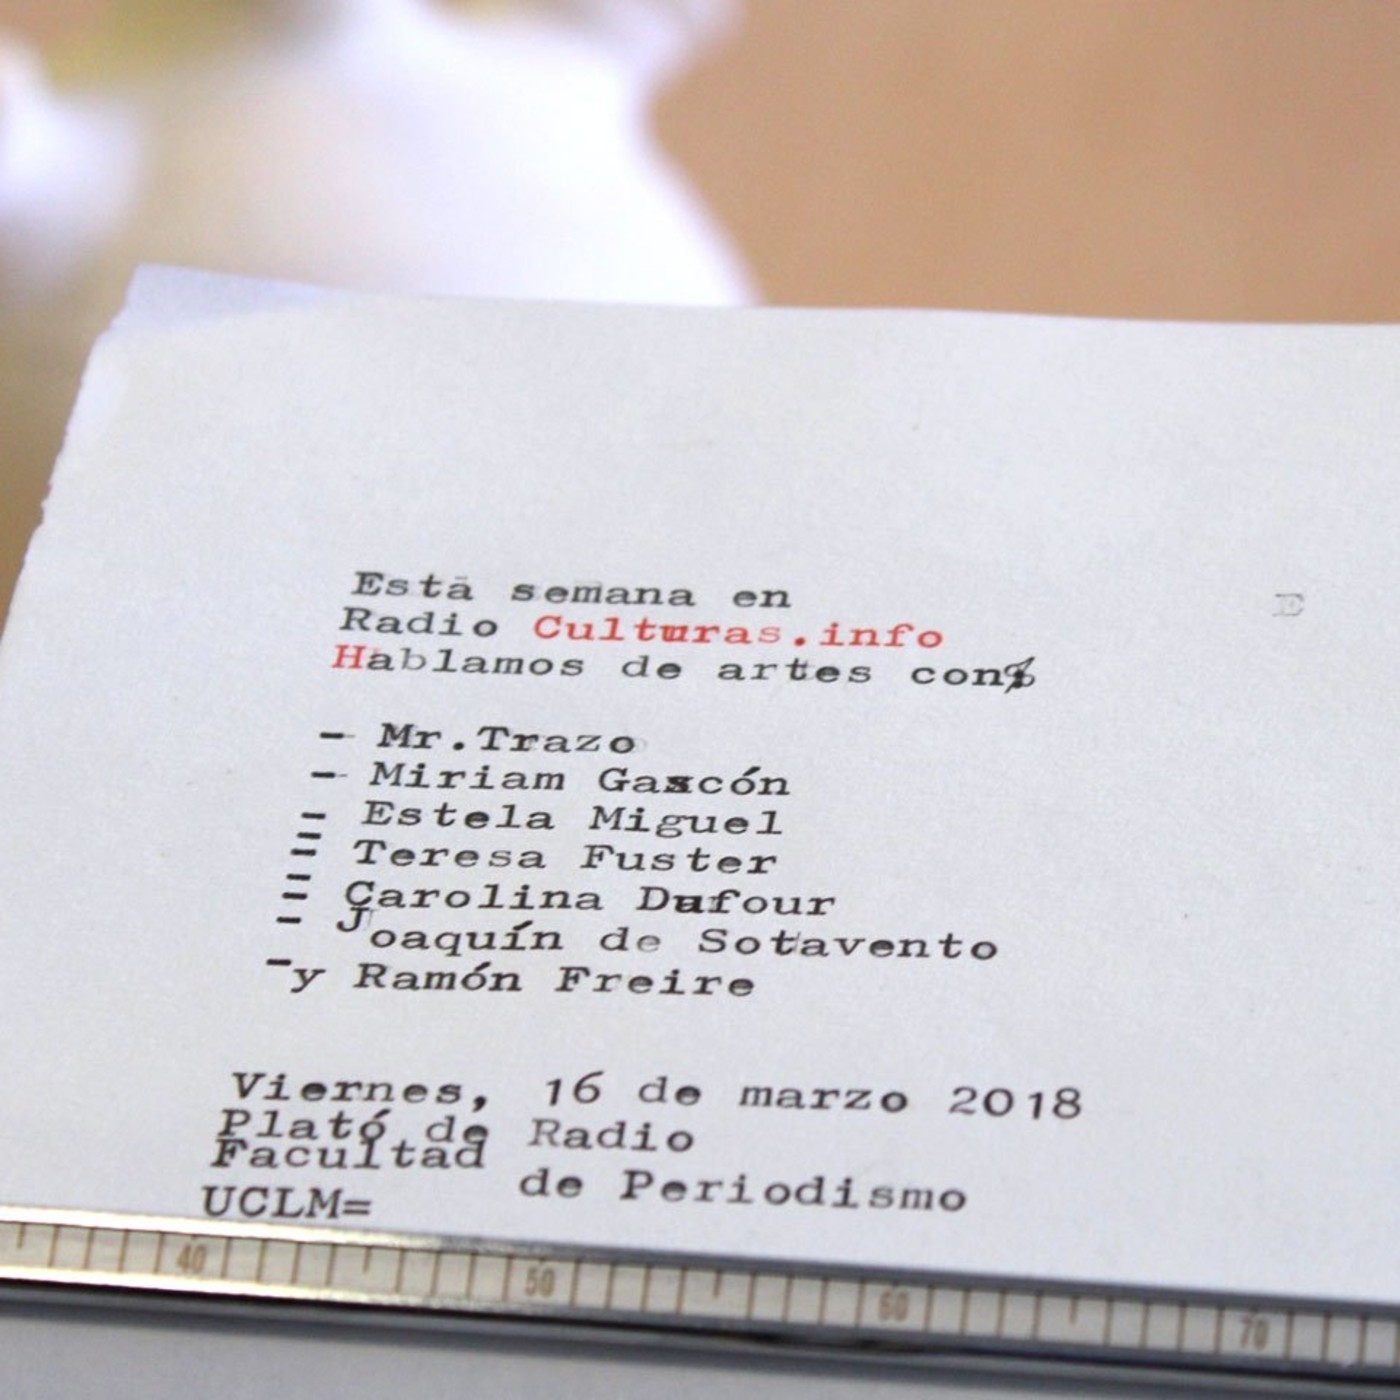 Está semana en
E
Radio Culturas.info
Hablamos de artes con%
- Mr.Trazo
- Miriam Gascón
- Estela Miguel
= Teresa Fuster
= Carolina Dufour
- Joaquín de Sotavento
-y Ramón Freire
Viernes, 16 de marzo 2018
Plató de Radio
Facultad de Periodismo
UCLM=
40 50 60 70